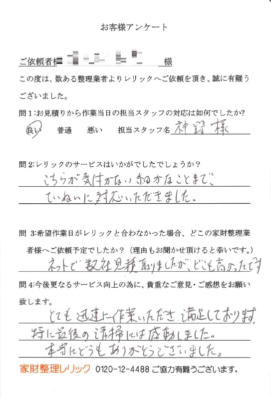 お客様アンケート
ご依頼者 様
この度は、数ある整理業者よりレリックへご依頼を頂き、誠に有難う
ございました。
問1:お見積りから作業当日の担当スタッフの対応は如何でしたか?
良い 普通 悪い 担当スタッフ名 神野 様
問2:レリックのサービスはいかがでしたでしょうか?
こちらが気付かない細かなことまで、
ていねいに対応いただきました。
問3:希望作業日がレリックと合わなかった場合、どこの家財整理業
者様へご依頼予定でしたか? (理由もお聞かせ頂けると幸いです。)
ネットで数社見積取りましたが、どこも高かったです
問4:今後更なるサービス向上の為に、貴重なご意見・ご感想をお願い
致します。
とても迅速に作業いただき満足しております
特に最後の清掃には感動しました。
本当にどうもありがとうございました。
家財整理レリック 0120-12-4488 ご協力有難うございます。